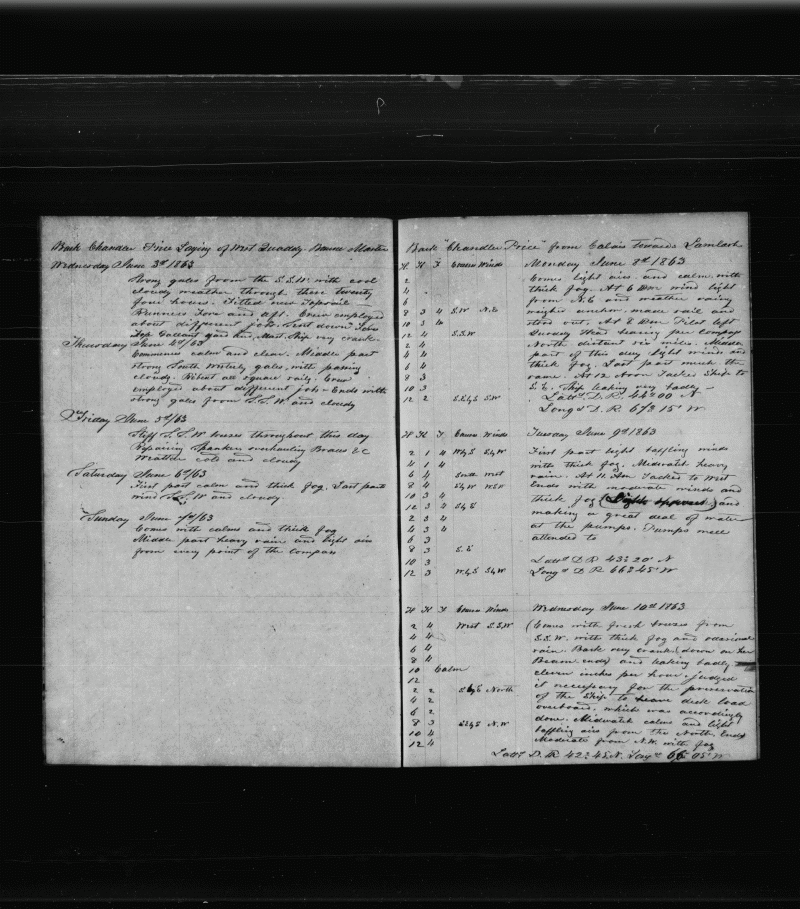 Bark Chandler Price Laying of West Quaddy Banner Master
Wednesday June 3rd 1863
Strong gales from the S.S.W. with cool
cloudy weather through these twenty
four hours. Fitted new Topsail
Runners Fore and aft. Crew employed
about different jobs. Sent down Fore
Top Gallant yard and Mast. Ship very crank.
Thursday June 4th/63
Commences calm and clear. Middle part
strong South Westerly gales, with passing
clouds. all square sails. Crew
employed about different jobs. Ends with
strong gales from S.S.W. and cloudy
Friday June 5th/63
Stiff S.S.W. breezes throughout this day
Repairing Spanker overhauling Braces &c
Weather cold and cloudy
Saturday June 6th/63
First part calm and thick fog. Last part
wind S.S.W and cloudy.
Sunday June 7th/63
Comes with calms and thick fog
Middle part heavy rain and light airs
from every point of the compass
Bark "Chandler Price" from Calais towards Lamlash
H K F Course Winds Monday June 8th 1863
2 Comes light airs and calm with
4 thick fog. At 6 PM wind light
6 from N.E and weather rainy
8 3 4 S.W N.E weighed anchor made sail and
10 3 4 stood out. At 8 PM Pilot left
12 4 S.S.W. Quaddy Head bearing per compass
2 4 North distant six miles. Middle
4 4 part of this day light winds and
6 4 thick fog. Last part much the
8 3 same. At 12 Noon Tacked Ship to
10 3 S.E. Ship leaking very badly
12 2 S.E by S S.W Latd D.R. 44°00 N
Longd D.R. 67° 15' W
H K F Course Winds Tuesday June 9th 1863
2 1 4 W by S S by W First part light baffling winds
4 1 4 with thick fog. Midwatch heavy
6 4 South West rain. At 11 AM Tacked to West
8 4 S by W W.S.W Ends with moderate winds and
10 3 4 thick fog and
12 3 4 S by E making a great deal of water
2 3 4 at the pumps. Pumps well
4 3 4 attended to
6 3
8 3 S.E
10 3 Latd D.R 43° 20' N
12 3 W by S S by W Longd D.R. 66° 45' W
H K F Course Winds Wednesday June 10th 1863
2 4 West S.S.W (Comes with fresh breezes from
4 4 S.S.W. with thick fog and occasional
6 4 rain. Bark very crank (down on her
8 4 Beam ends) and leaking badly
10 Calm eleven inches per hour. judged
12 it necessary for the preservation
2 2 S by E North of the Ship to heave deck load
4 2 overboard, which was accordingly
6 2 done. Midwatch calms and light
8 3 S.E by S N.W baffling airs from the North. Ends
10 4 Moderate from N.W. with fog
12 4
Latd D.R 42° 45 N. Longd 66° 05' W